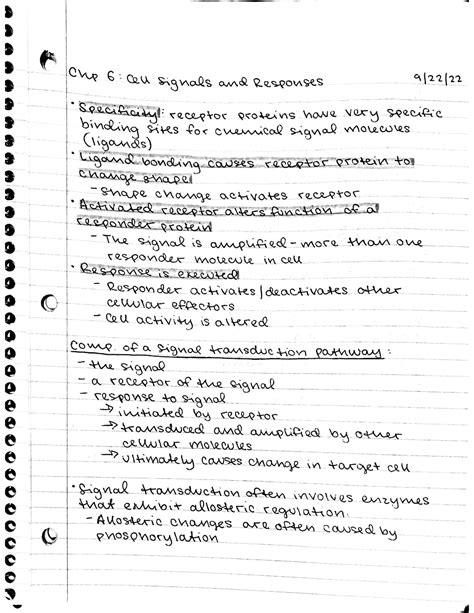 Chp 6: Cell Signals and Responses 9/22/22
• Specificity: receptor proteins have very specific
binding sites for chemical signal molecules
(ligands)
• Ligand bonding causes receptor protein to
change shape
- Shape change activates receptor
• Activated receptor alters function of a
responder protein
- The signal is amplified - more than one
responder molecule in cell
• Response is executed
- Responder activates/deactivates other
cellular effectors
- Cell activity is altered
Comp. of a signal transduction pathway:
- the signal
- a receptor of the signal
- response to signal
→ initiated by receptor
→ transduced and amplified by other
cellular molecules
→ ultimately causes change in target cell
• Signal transduction often involves enzymes
that exhibit allosteric regulation.
- Allosteric changes are often caused by
phosphorylation